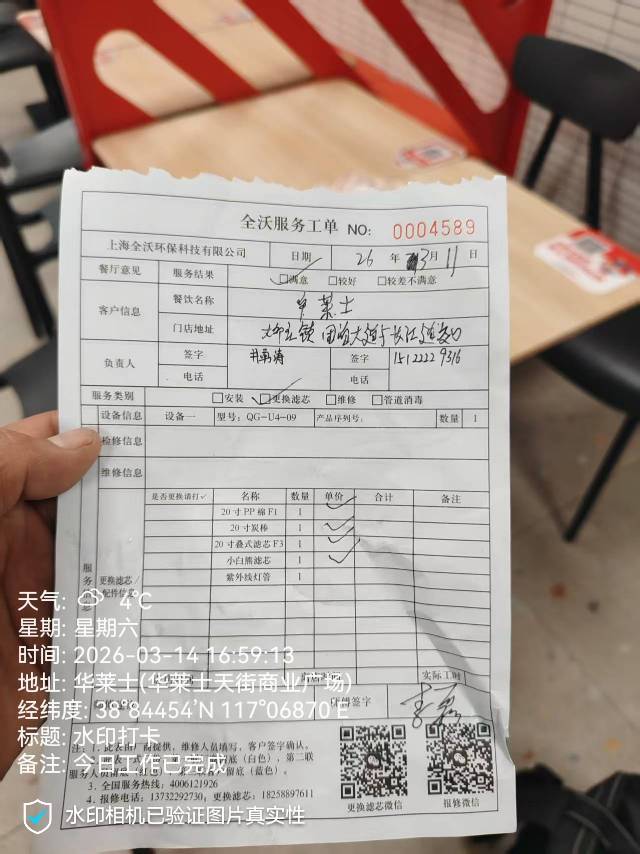 全沃服务工单 NO: 0004589
上海全沃环保科技有限公司 日期 26 年 3月 11 日
餐厅意见 服务结果 ☑满意 □较好 □较差不满意
客户信息 餐饮名称 华莱士
门店地址
负责人 签字 签字 1512222 9316
电话 电话
服务类别 □安装 ☑更换滤芯 □维修 □管道消毒
设备信息 设备一 型号: QG-U4-09 产品序列号: 数量 1
检修信息
维修信息
是否更换请打✓ 名称 数量 单价 合计 备注
20寸PP棉F1 1 ✓
20寸炭棒 1 ✓
20寸叠式滤芯F3 1 ✓
小白熊滤芯 1 ✓
紫外线灯管 1
更换滤芯/
配件信息
实际工时
签字
天气: 4℃
星期: 星期六
时间: 2026-03-14 16:59:13
地址: 华莱士(华莱士天街商业广场)
经纬度: 38°84454′N 117°06870′E
标题: 水印打卡
备注: 今日工作已完成
提供，维修人员填写，客户签字确认。
(白色)，第二联
留底（蓝色）。
3. 全国服务热线: 4006121926
4. 报修电话: 13732292730; 更换滤芯: 18258897611
更换滤芯微信 报修微信
水印相机已验证图片真实性